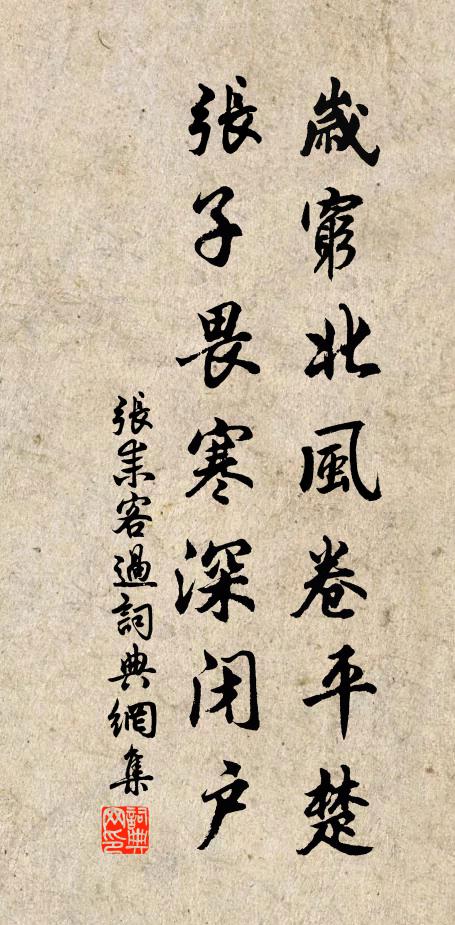 歲窮北風卷平楚
張子畏寒深閉戶
張耒客過詞典網集
詞典網印